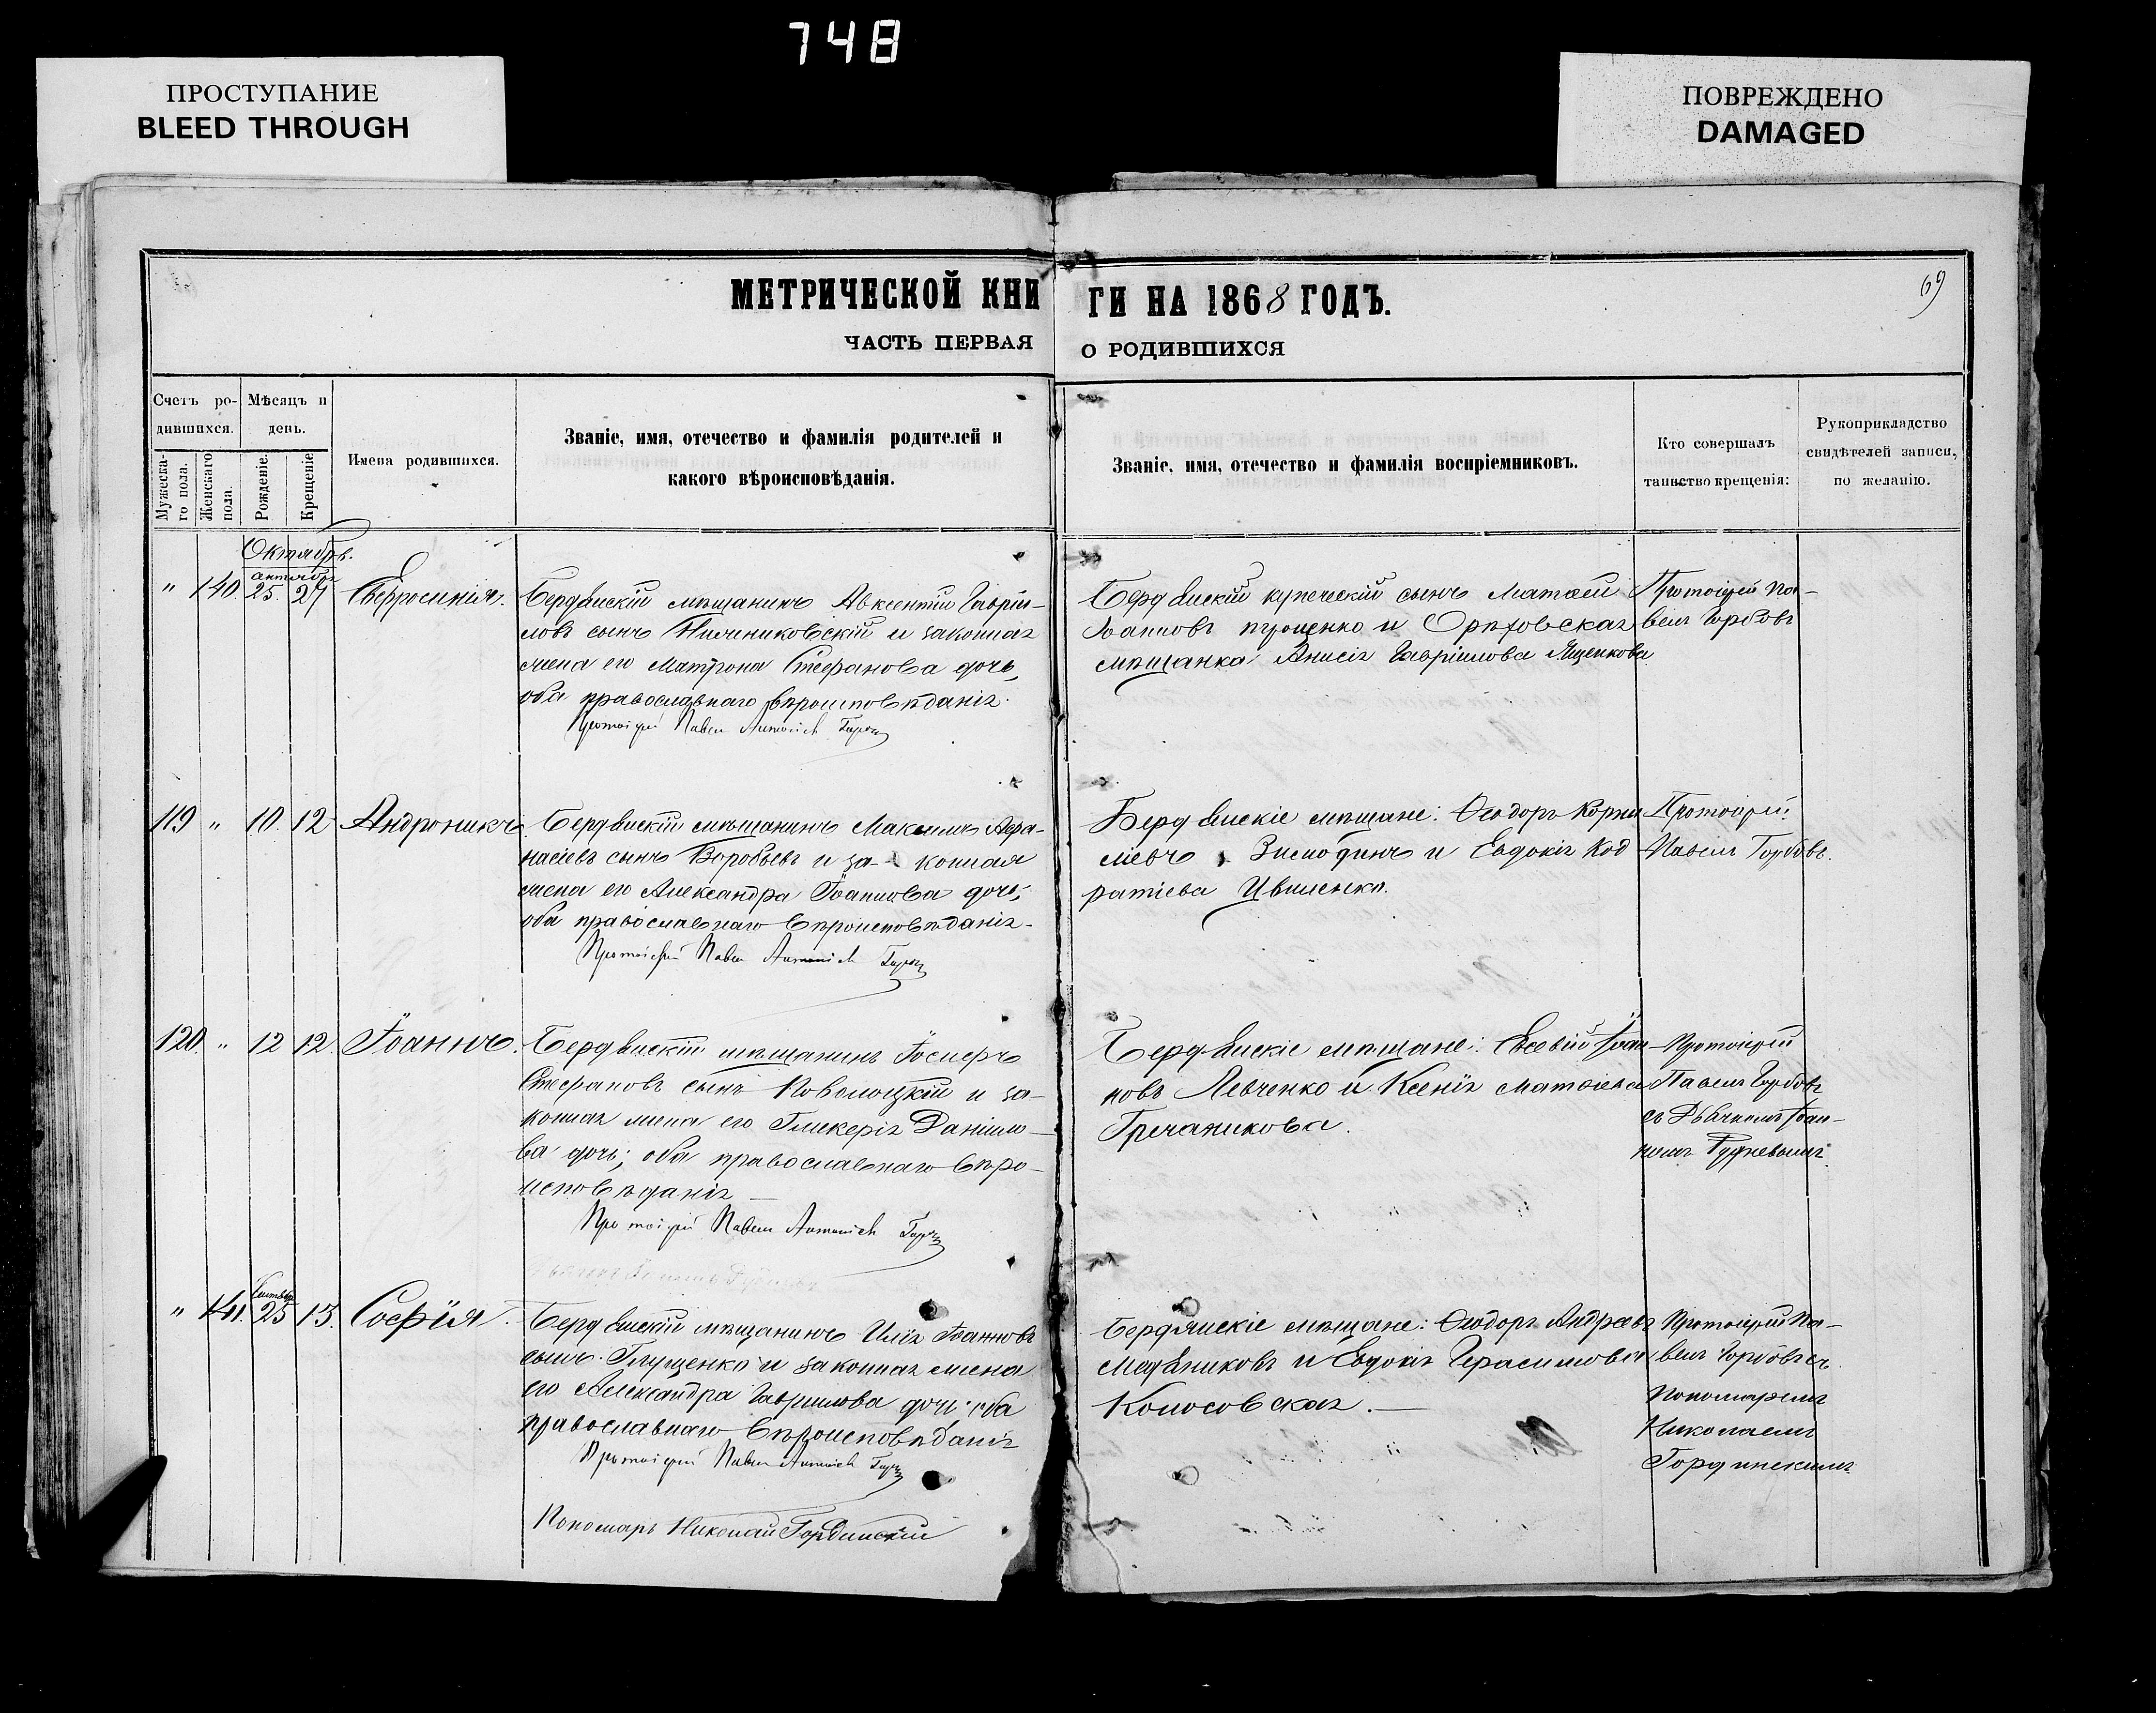 748
ПРОСТУПАНИЕ
BLEED THROUGH
ПОВРЕЖДЕНО
DAMAGED
МЕТРИЧЕСКОЙ КНИ ГИ НА 1868 ГОДЪ.
69
ЧАСТЬ ПЕРВАЯ О РОДИВШИХСЯ
Счетъ ро-
дившихся.
Мужеска-
го пола.
Женскаго
пола.
Мѣсяцъ и
день.
Рожденіе.
Крещеніе
Имена родившихся.
Званіе, имя, отечество и фамилія родителей и
какого вѣроисповѣданія.
Званіе, имя, отечество и фамилія воспріемниковъ.
Кто совершалъ
таинство крещенія:
Рукоприкладство
свидѣтелей записи,
по желанію.
Октябрь.
октябрь
" 140. 25. 27
Бердянскій мѣщанинъ Авксентій Гаврі-
ловъ сынъ и законная
жена его Матрона Стефанова дочь,
оба православнаго вѣроисповѣданія.
Протоіерей Павелъ
Бердянскій купеческій сынъ Матѳей
Іоанновъ Проценко и Орѣховская
мѣщанка Анисія Гавріилова Ященкова
Протоіерей Па-
велъ Горбовъ
119 " 10. 12 Андроникъ
Бердянскій мѣщанинъ Максимъ Аѳа-
насіевъ сынъ Воробьевъ и за- конная
жена его Александра Іоаннова дочь,
оба православнаго вѣроисповѣданія.
Протоіерей Павелъ
Бердянскіе мѣщане: Ѳеодоръ Корни
ліевъ и Евдокія Код
ратіева Цвиленко.
Протоіерей
Павелъ Горбовъ.
120. " 12 12. Іоаннъ.
Бердянскій мѣщанинъ Іосифъ
Стефановъ сынъ Коволоцкій и за-
конная жена его Гликерія Даніило-
ва дочь; оба православнаго вѣро-
исповѣданія
Протоіерей Павелъ
Бердянскіе мѣщане: Евсевій Іоан
новъ Левченко и Ксенія Матѳіева
Гречаникова.
Протоіерей
Павелъ Горбовъ
съ Дьячкомъ Іоан-
номъ Рудневымъ.
Сентябр
" 141. 25 13. Софія.
Бердянскій мѣщанинъ Илія Іоанновъ
сынъ Глущенко и законная жена
его Александра Гавриилова дочь; оба
православнаго вѣроисповѣданія
Протоіерей Павелъ
Пономарь Николай Гординскій
Бердянскіе мѣщане: Ѳеодоръ Андреевъ
Медяниковъ и Евдокія Герасимова
Колосовская.
Протоіерей Па-
велъ Горбовъ съ
Пономаремъ
Николаемъ
Гординскимъ